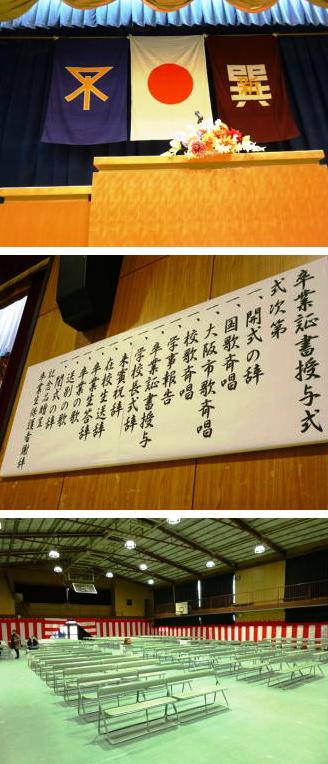 卒業證書授与式
式次第
一、開式の辞
一、国歌斉唱
一、大阪市歌斉唱
一、校歌斉唱
一、学事報告
一、卒業証書授与
一、学校長式辞
一、来賓祝辞
一、在校生送辞
一、卒業生答辞
一、卒業の歌
一、送別の歌
一、閉式の辞
記念品贈呈
卒業生保護者謝辞